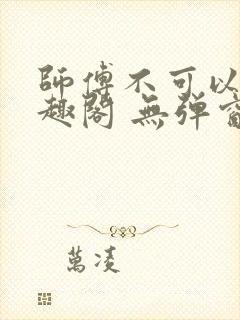 師傅不可以
趣閣 無弹窗
萬凌